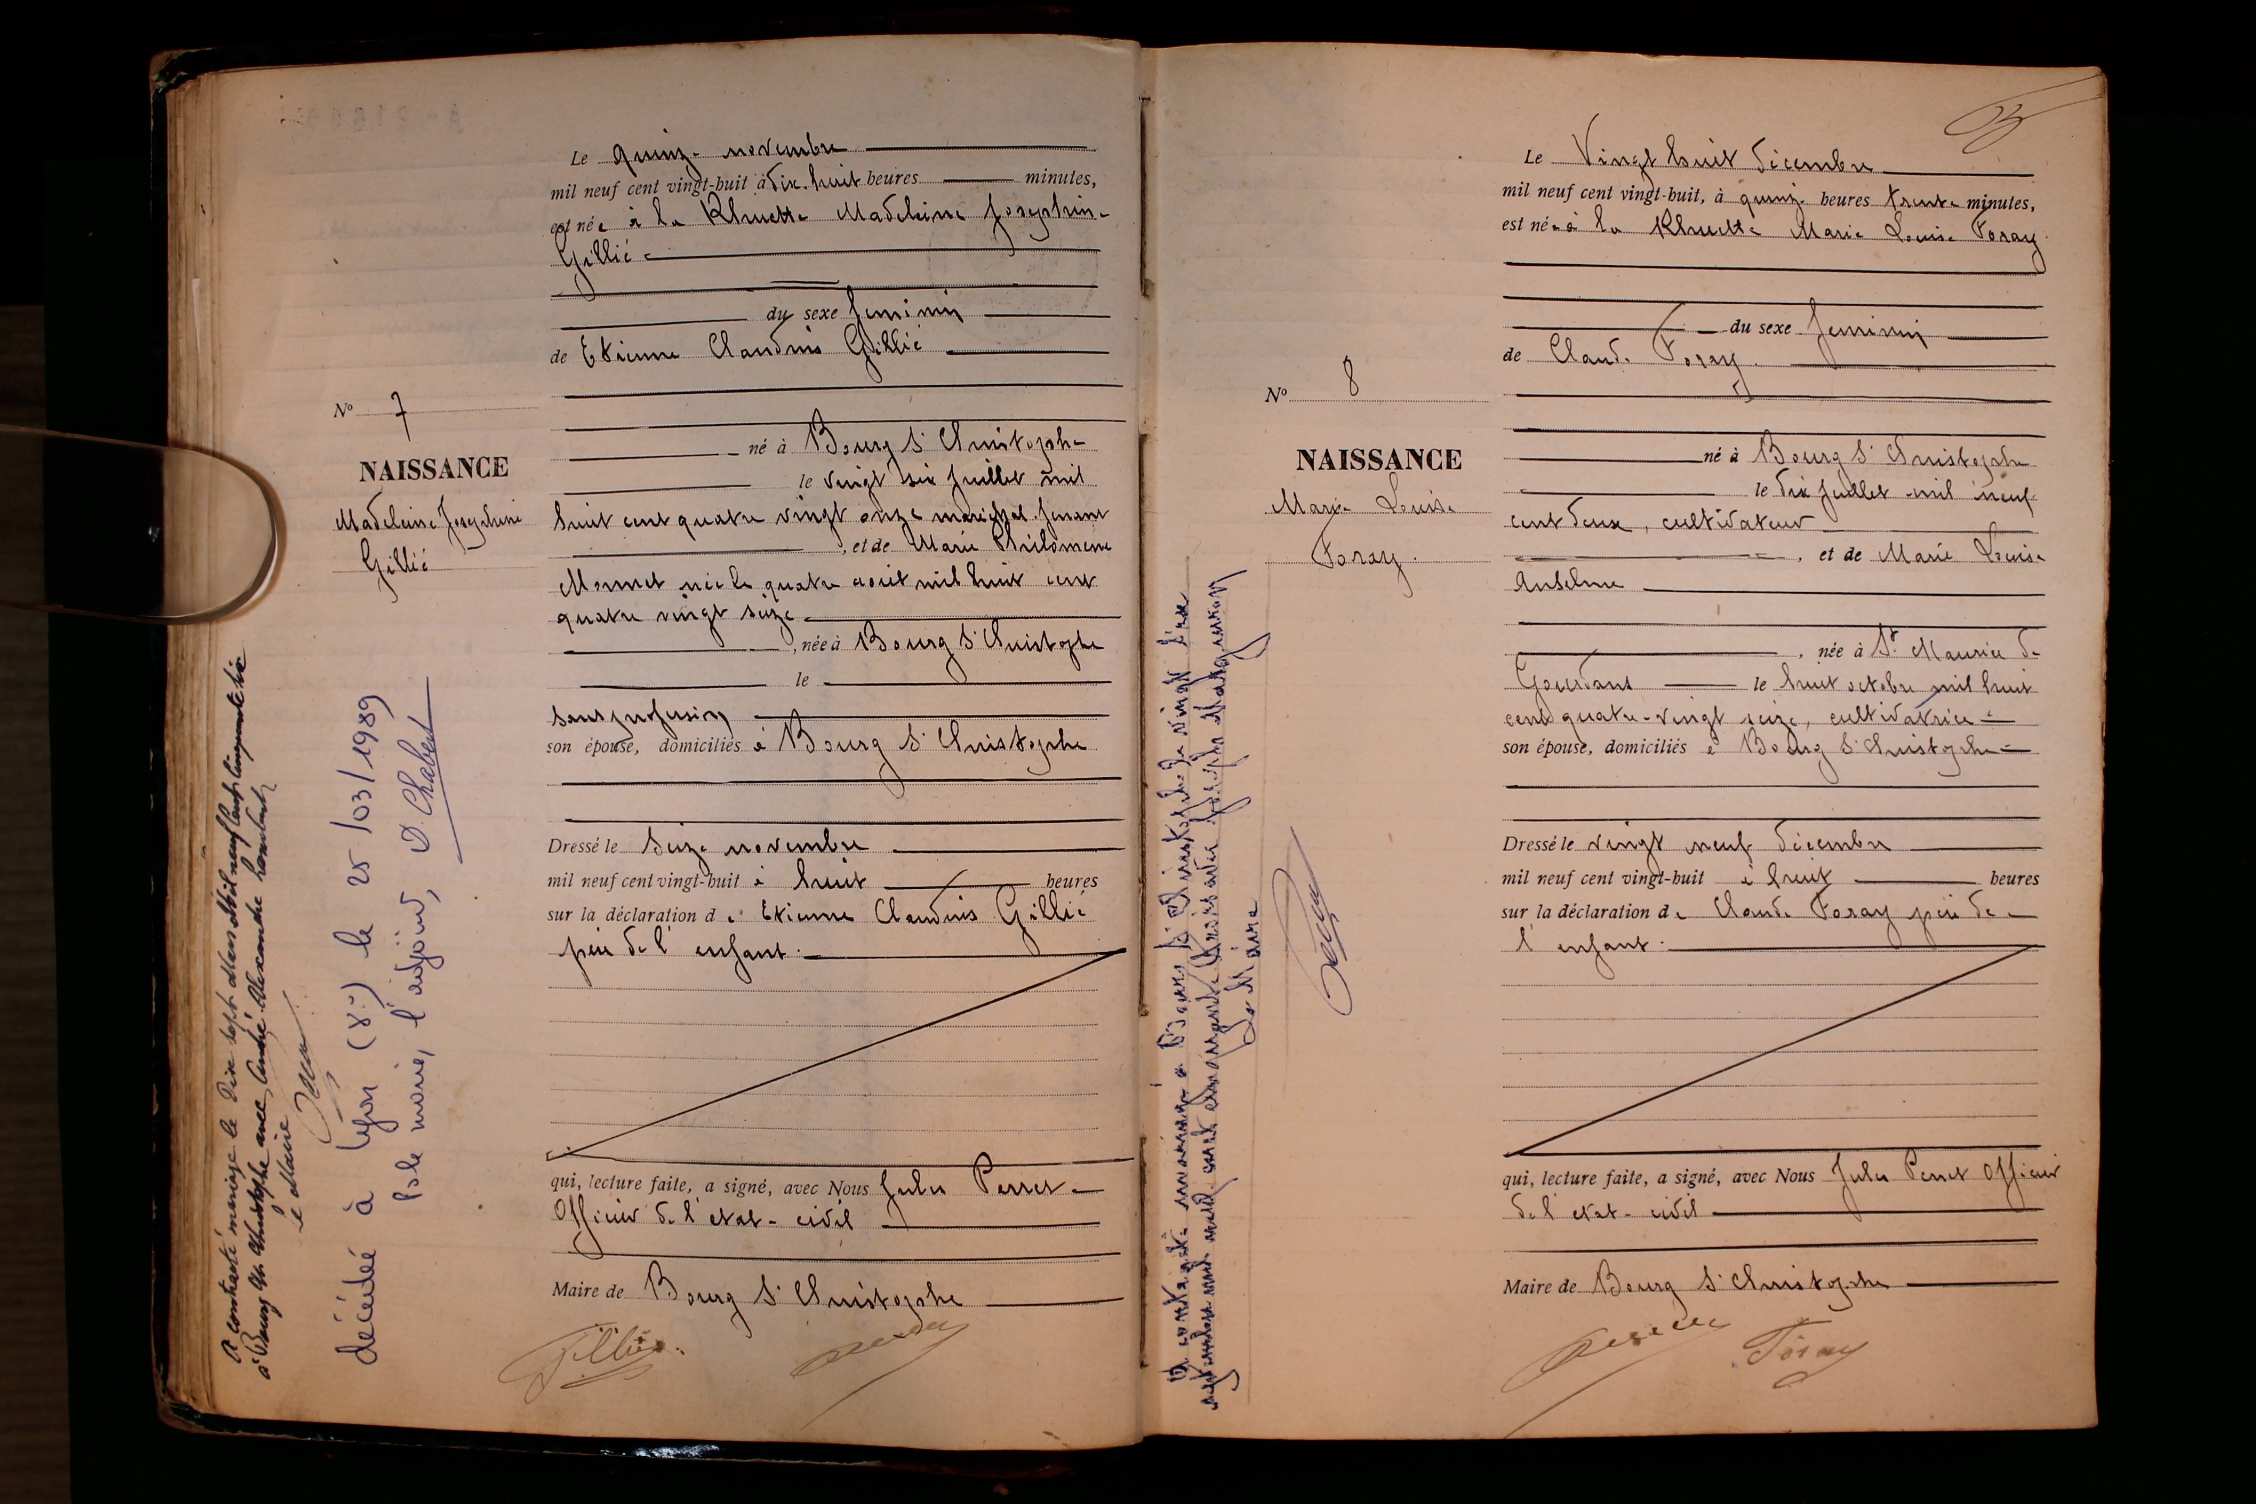 Le quinze novembre
mil neuf cent vingt-huit à dix huit heures minutes,
est née à la Rhuette Madeleine Josephine
Gillié
du sexe feminin
de Etienne Claudius Gillié
né à Bourg St Christophe
le vingt six juillet mil
huit cent quatre vingt onze maréchal ferrant
, et de Marie Philomene
Monnet née le quatre aout mil huit cent
quatre vingt seize
, née à Bourg St Christophe
le
sans profession
son épouse, domiciliés à Bourg St Christophe
Dressé le seize novembre
mil neuf cent vingt-huit à huit heures
sur la déclaration de Etienne Claudius Gillié
père de l'enfant.
qui, lecture faite, a signé, avec Nous Jules Perret
Officier de l'etat-civil
Maire de Bourg St Christophe
Gillié
No 7
NAISSANCE
Madeleine Josephine
Gillié
A contracté mariage le Dix sept Mars Mil neuf cent cinquante
à Bourg St Christophe avec André Alexandre
Le Maire
décédée à Lyon le 25/03/1989
P. le maire, l'adjoint, D. Chabert
No 8
NAISSANCE
Marie Louise
Foray.
A contracté mariage à Bourg St Christophe le vingt deux
septembre mil neuf cent cinquante
Le Maire
Le Vingt huit décembre
mil neuf cent vingt-huit, à quinze heures trente minutes,
est née à la Rhuette Marie Louise Foray
du sexe feminin
de Claude Foray
né à Bourg St Christophe
le dix juillet mil neuf
cent deux, cultivateur
, et de Marie Louise
Anselme
, née à St Maurice de
Gourdans le huit octobre mil huit
cent quatre-vingt seize, cultivatrice
son épouse, domiciliés à Bourg St Christophe
Dressé le vingt neuf décembre
mil neuf cent vingt-huit à huit heures
sur la déclaration de Claude Foray père de
l'enfant.
qui, lecture faite, a signé, avec Nous Jules Perret Officier
de l'etat-civil
Maire de Bourg St Christophe
Foray